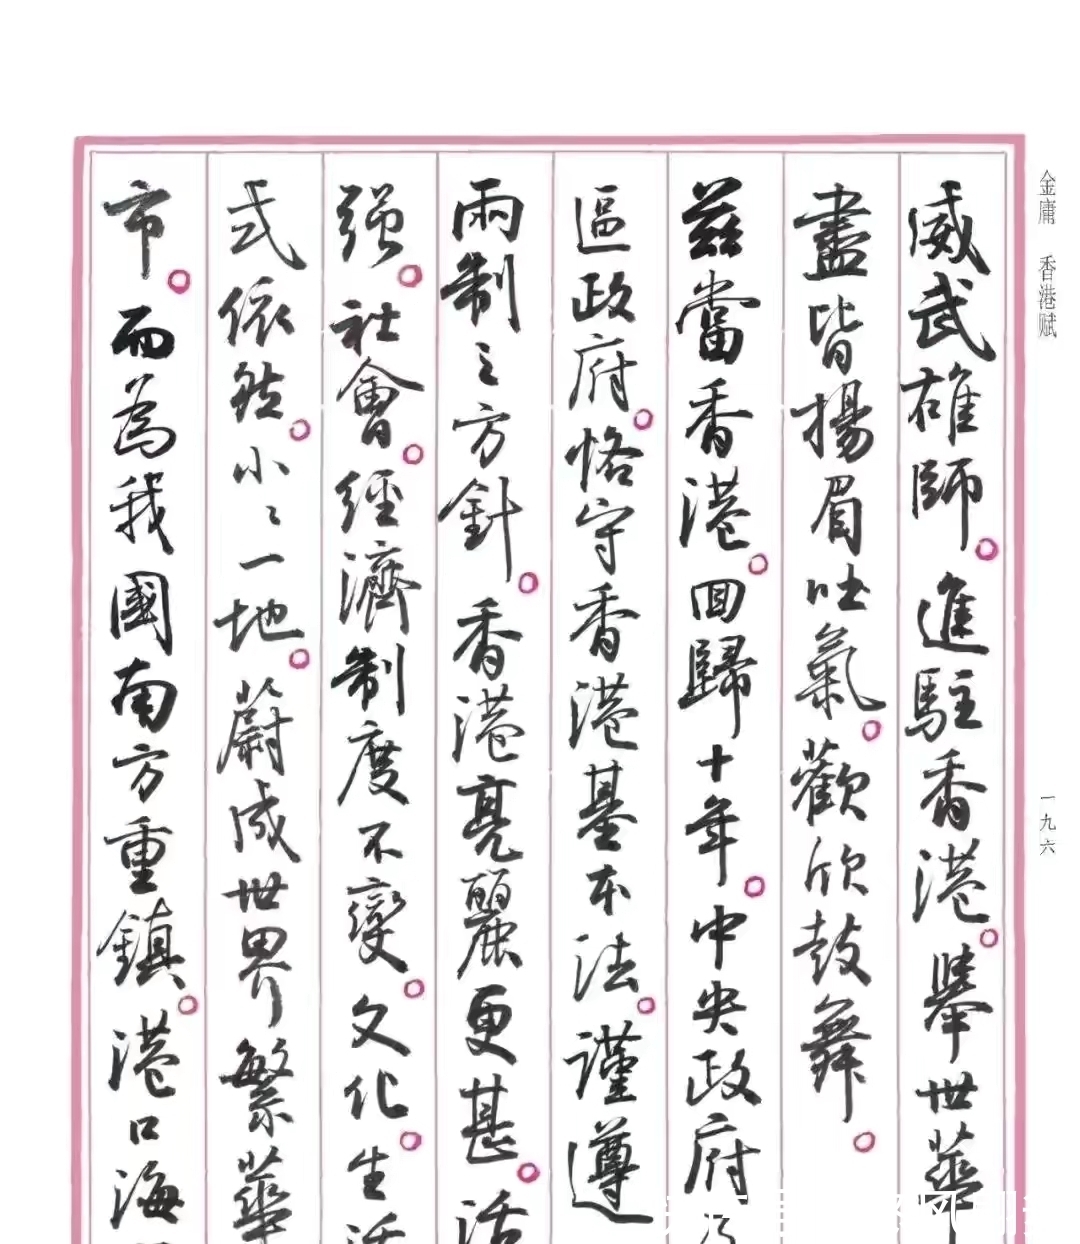 金庸 香港赋
一九六
威武雄師。進駐香港。舉世華
盡皆揚眉吐氣。歡欣鼓舞。
茲當香港。回歸十年。中央政府
區政府。恪守香港基本法。謹遵
兩制之方針。香港亮麗更甚。活
強。社會。經濟制度不變。文化。生活
式依然。小〻一地。蔚成世界繁華
市。而為我國南方重鎮。港口海